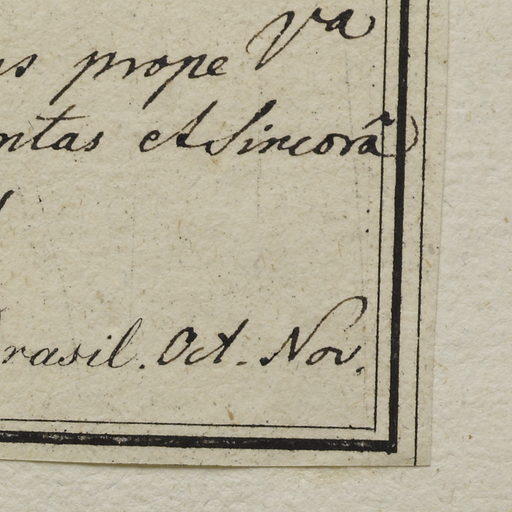 us prope Va
ntas et Sincorâ
rasil. Oct. Nov.